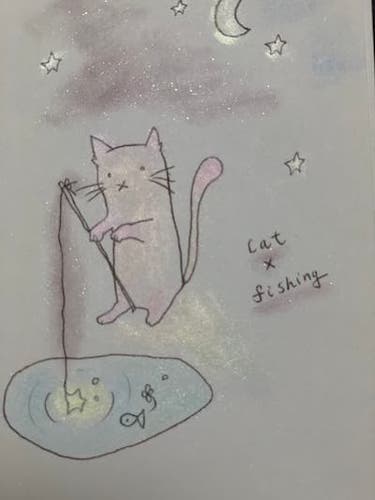 cat
×
fishing